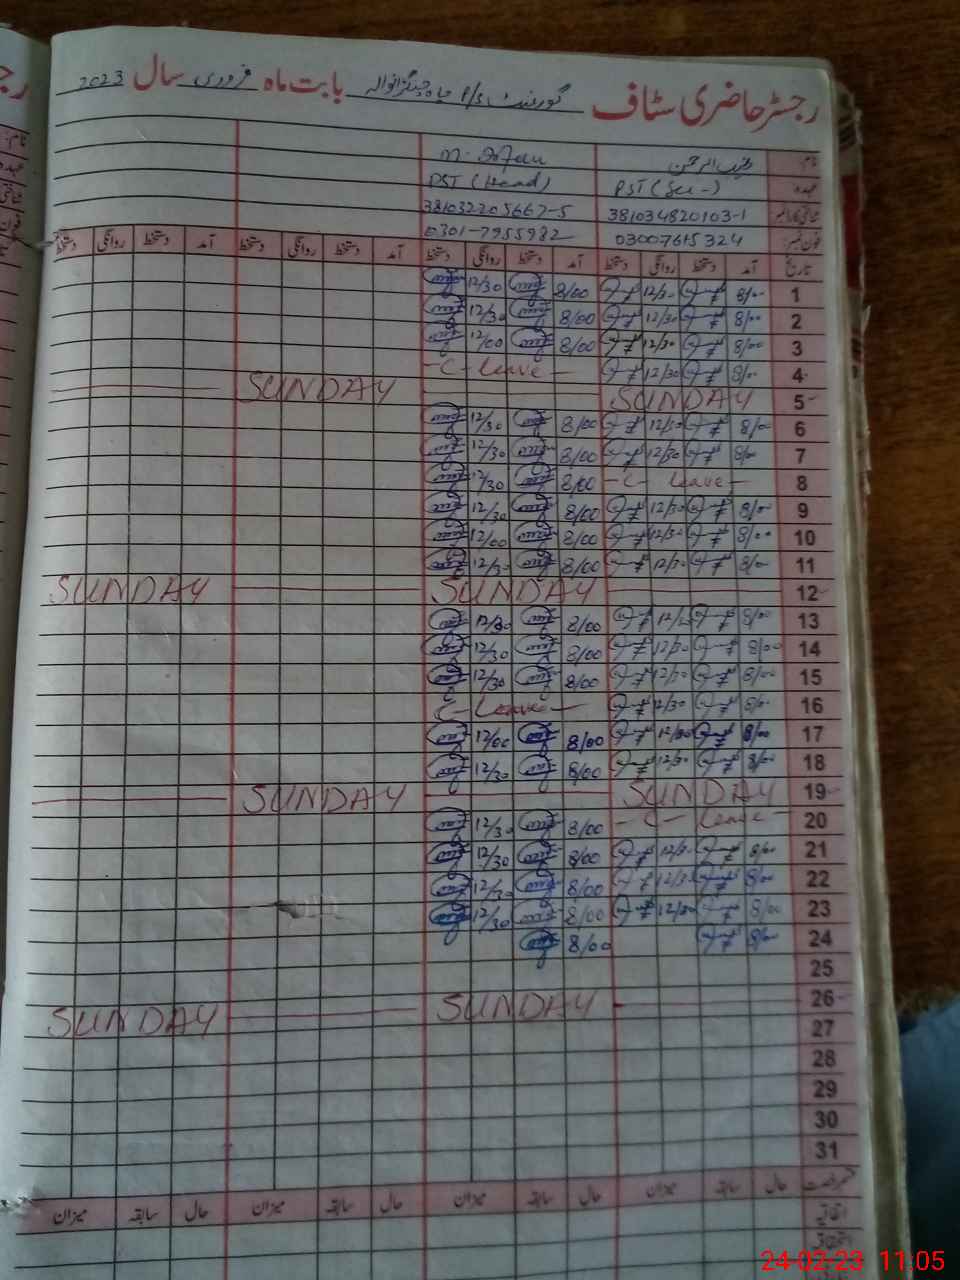 رجسٹر حاضری سٹاف گورنمنٹ P/S چاہ چنگڑانوالہ بابت ماہ فروری سال 2023
نام: M. Irfan
عہدہ: PST (Sci-) PST (Head)
شناختی کارڈ نمبر 381034820103-1 381032205667-5
فون نمبر: 03007615324 0301-7955982
تاریخ آمد دستخط روانگی دستخط آمد دستخط روانگی دستخط آمد دستخط روانگی دستخط آمد دستخط روانگی دستخط
1 8/00 12/30 8/00 12/30
2 8/00 12/30 8/00 12/30
3 8/00 12/30 8/00 12/00
4 8/00 12/30 C-Leave
5 SUNDAY SUNDAY
6 8/00 12/30 8/00 12/30
7 8/00 12/30 8/00 12/30
8 C-Leave 8/00 12/30
9 8/00 12/30 8/00 12/30
10 8/00 12/30 8/00 12/00
11 8/00 12/30 8/00 12/30
12 SUNDAY SUNDAY
13 8/00 12/30 8/00 12/30
14 8/00 12/30 8/00 12/30
15 8/00 12/30 8/00 12/30
16 8/00 12/30 C-Leave
17 8/00 12/30 8/00 12/00
18 8/00 12/30 8/00 12/30
19 SUNDAY SUNDAY
20 C-Leave 8/00 12/30
21 8/00 12/30 8/00 12/30
22 8/00 12/30 8/00 12/30
23 8/00 12/30 8/00 12/30
24 8/00 8/00
25
26 SUNDAY SUNDAY
27
28
29
30
31
حال سابقہ میزان حال سابقہ میزان حال سابقہ میزان حال سابقہ میزان
اتفاقیہ
24-02-23 11:05